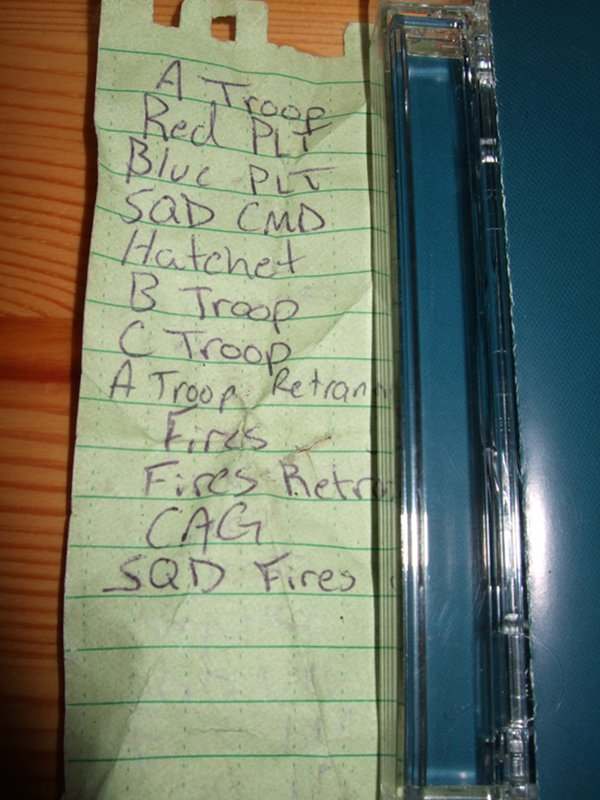 A Troop
Red PLT
Blue PLT
SQD CMD
Hatchet
B Troop
C Troop
A Troop Retran
Fires
Fires Retra
CAG
SQD Fires